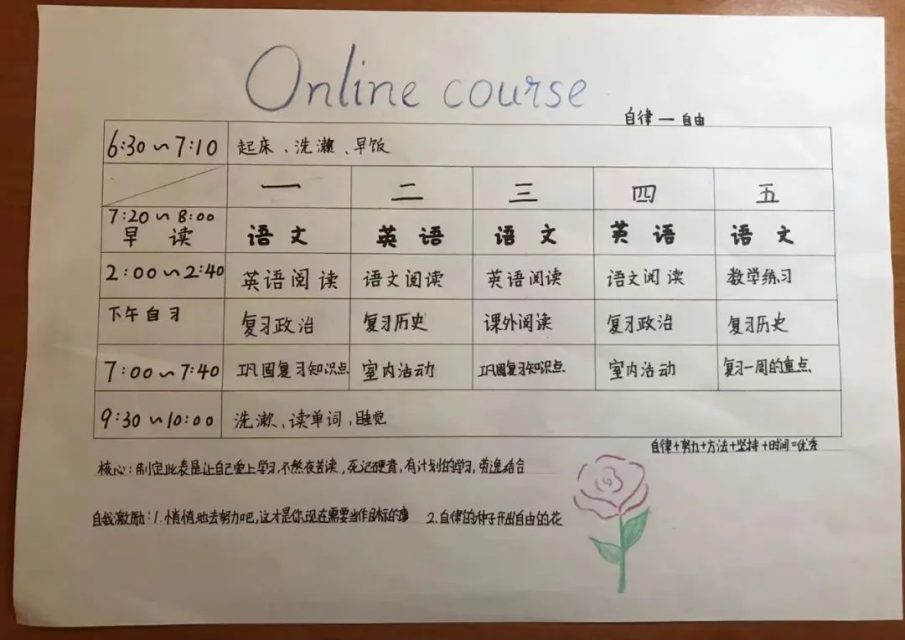 Online course
自律一自由
6:30～7:10 起床、洗漱、早饭
一 二 三 四 五
7:20～8:00
早 读 语文 英语 语文 英语 语文
2:00～2:40 英语阅读 语文阅读 英语阅读 语文阅读 数学练习
下午自习 复习政治 复习历史 课外阅读 复习政治 复习历史
7:00～7:40 巩固复习知识点 室内活动 巩固复习知识点 室内活动 复习一周的重点
9:30～10:00 洗漱、读单词,睡觉
自律+努力+方法+坚持+时间=优秀
核心:制定此表是让自己爱上学习,不熬夜苦读,死记硬背,有计划的学习,劳逸结合
自我激励:1.悄悄地去努力吧,这才是你现在需要当作目标的事 2.自律的种子开出自由的花